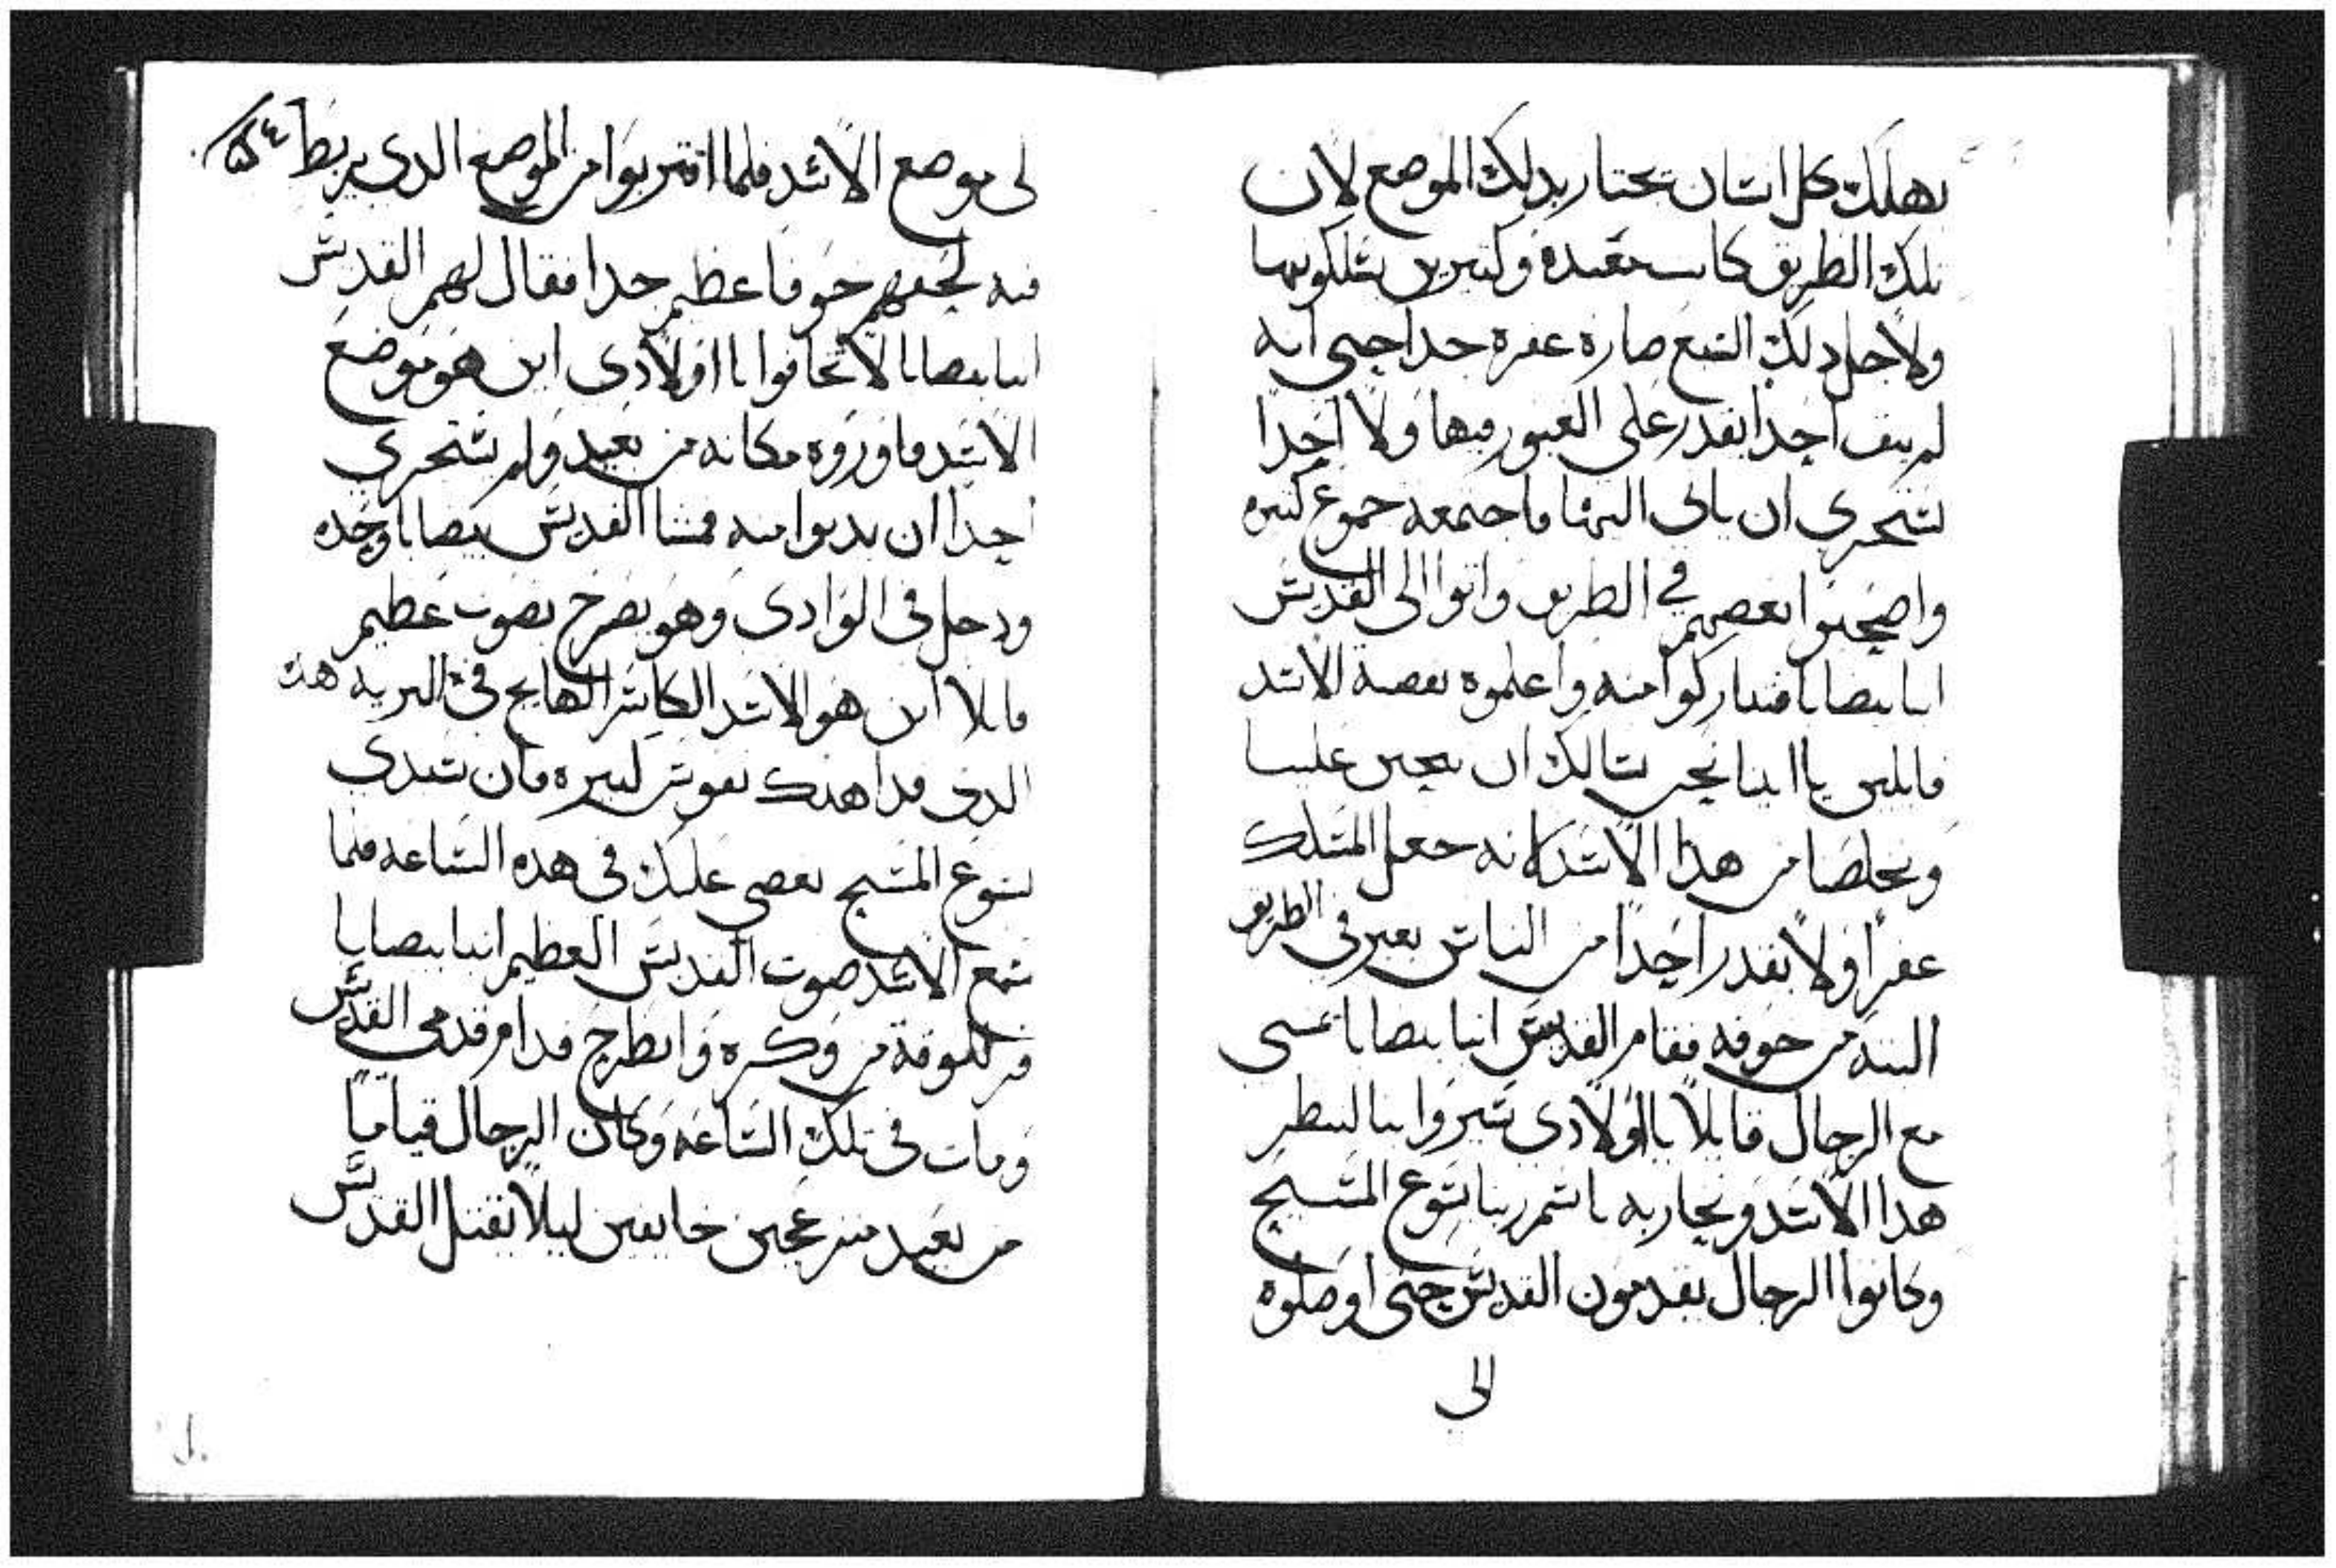 يهلك كل انسان يجتاز بدلك الموضع لان
تلك الطريق كانت مقيده وكتيرين يسلكونها
ولاجل دلك السبع صاره عفره جدا حتى انه
لم يبق احدا يقدر على العبور فيها ولا احدا
يستجرى ان ياتى اليها فاجتمعه جموع كتيره
واصحبوا بعضهم في الطريق واتوا الى القديس
انبا بيصايا فتباركوا منه واعلموه بقصة الاسد
قايلين يا ابينا نحن نسالك ان تعين علينا
وتخلصنا من هدا الاسد لانه جعل المسلك
عفرا ولا يقدر احدا من الناس يعبر فى الطريق
البته من خوفه فقام القديس انبا بيصايا تمشى
مع الرجال قايلا يا اولادى سيروا بنا لننظر
هدا الاسد ونحاربه باسم ربنا يسوع المسيح
وكانوا الرجال يقدمون القديس حتى اوصلوه
الى
لى موضع الاسد فلما اقتربوا من الموضع الدى يربط ٥٤
فيه لحقهم خوفا عظيم جدا فقال لهم القديس
انبا بيصايا لا تخافوا يا اولادى اين هو موضع
الاسد فاوروه مكانه من بعيد ولم يستجرى
احدا ان يدنوا منه فمشا القديس بيصايا وحده
ودخل فى الوادى وهو يصرخ بصوت عظيم
قايلا اين هو الاسد الكاسر الهايج فى البريه هده
الدى قد اهلك نفوس كتيره فان سيدى
يسوع المسيح يقضى عليك فى هده الساعه فلما
سمع الاسد صوت القديس العظيم انبا بيصايا
فر للوقت من وكره وانطرح قدام قدمى القديس
ومات فى تلك الساعه وكان الرجال قياما
من بعيد منزعجين خايفين ليلا يقتل القديس